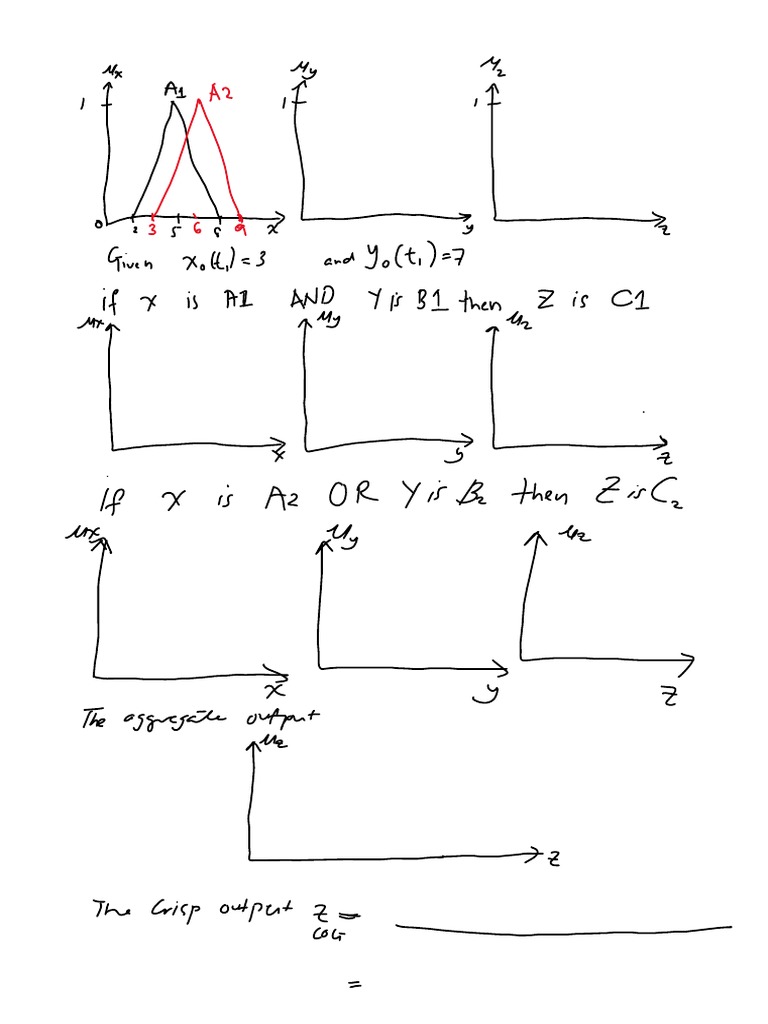 μx μy μz
1 A1 A2 1 1
0 2 3 5 6 8 9 x y z
Given x₀(t₁)=3 and y₀(t₁)=7
if x is A1 AND Y is B1 then Z is C1
μx μy μz
x y z
If x is A2 OR Y is B₂ then Z is C₂
μx μy μz
x y z
The aggregate output
μz
z
The Crisp output z =
COG
=